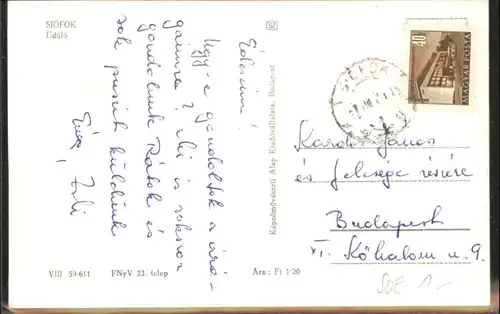 SIÓFOK
Üdülő
Édeseim!
Ugye gondoltok a
gaimra? Mi is sokszor
gondolunk Rátok és
sok puszit küldünk
Éva, Zoli
VIII 59-611 FNyV 23. telep Ára: Ft 1·20
Képzőművészeti Alap Kiadóvállalata, Budapest
40
MAGYAR POSTA
János
és felesége részére
Budapest
XI. Kőhalom u. 9.